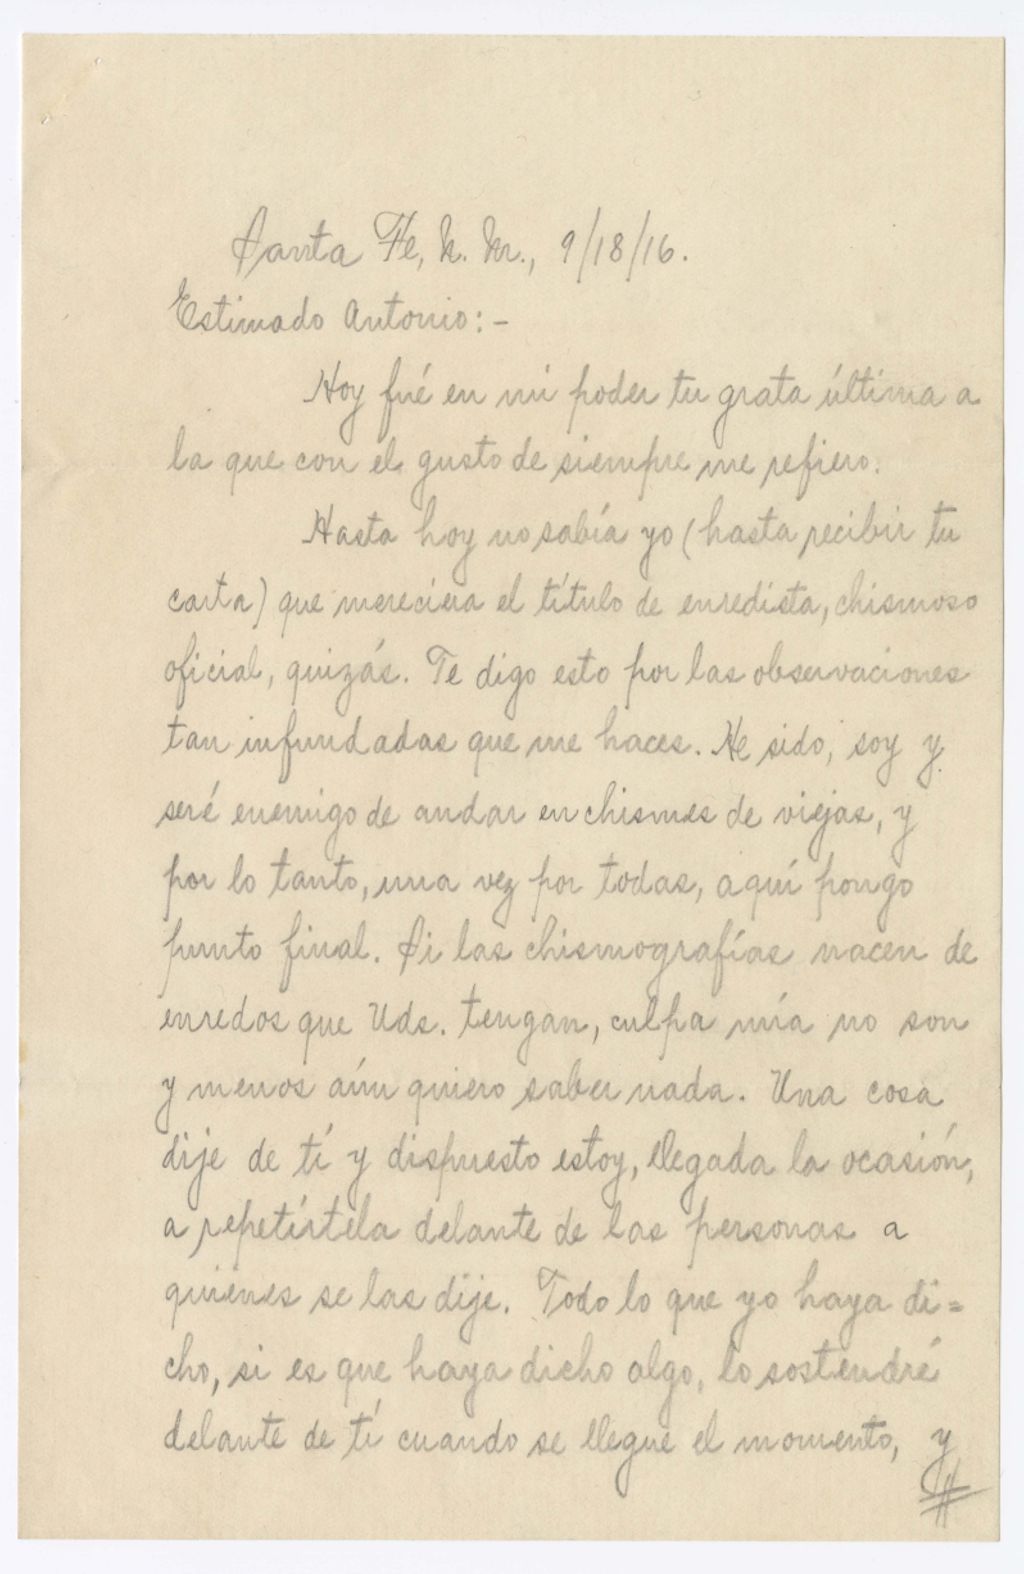 Santa Fe, N. M., 9/18/16.
Estimado Antonio:-
Hoy fué en mi poder tu grata última a
la que con el gusto de siempre me refiero.
Hasta hoy no sabía yo (hasta recibir tu
carta) que mereciera el título de enredista, chismoso
oficial, quizás. Te digo esto por las observaciones
tan infundadas que me haces. He sido, soy y
seré enemigo de andar en chismes de viejas, y
por lo tanto, una vez por todas, aquí pongo
punto final. Si las chismografías nacen de
enredos que Uds. tengan, culpa mía no son
y menos aún quiero saber nada. Una cosa
dije de tí y dispuesto estoy, llegada la ocasión,
a repetírtela delante de las personas a
quienes se las dije. Todo lo que yo haya di=
cho, si es que haya dicho algo, lo sostendré
delante de tí cuando se llegue el momento, y